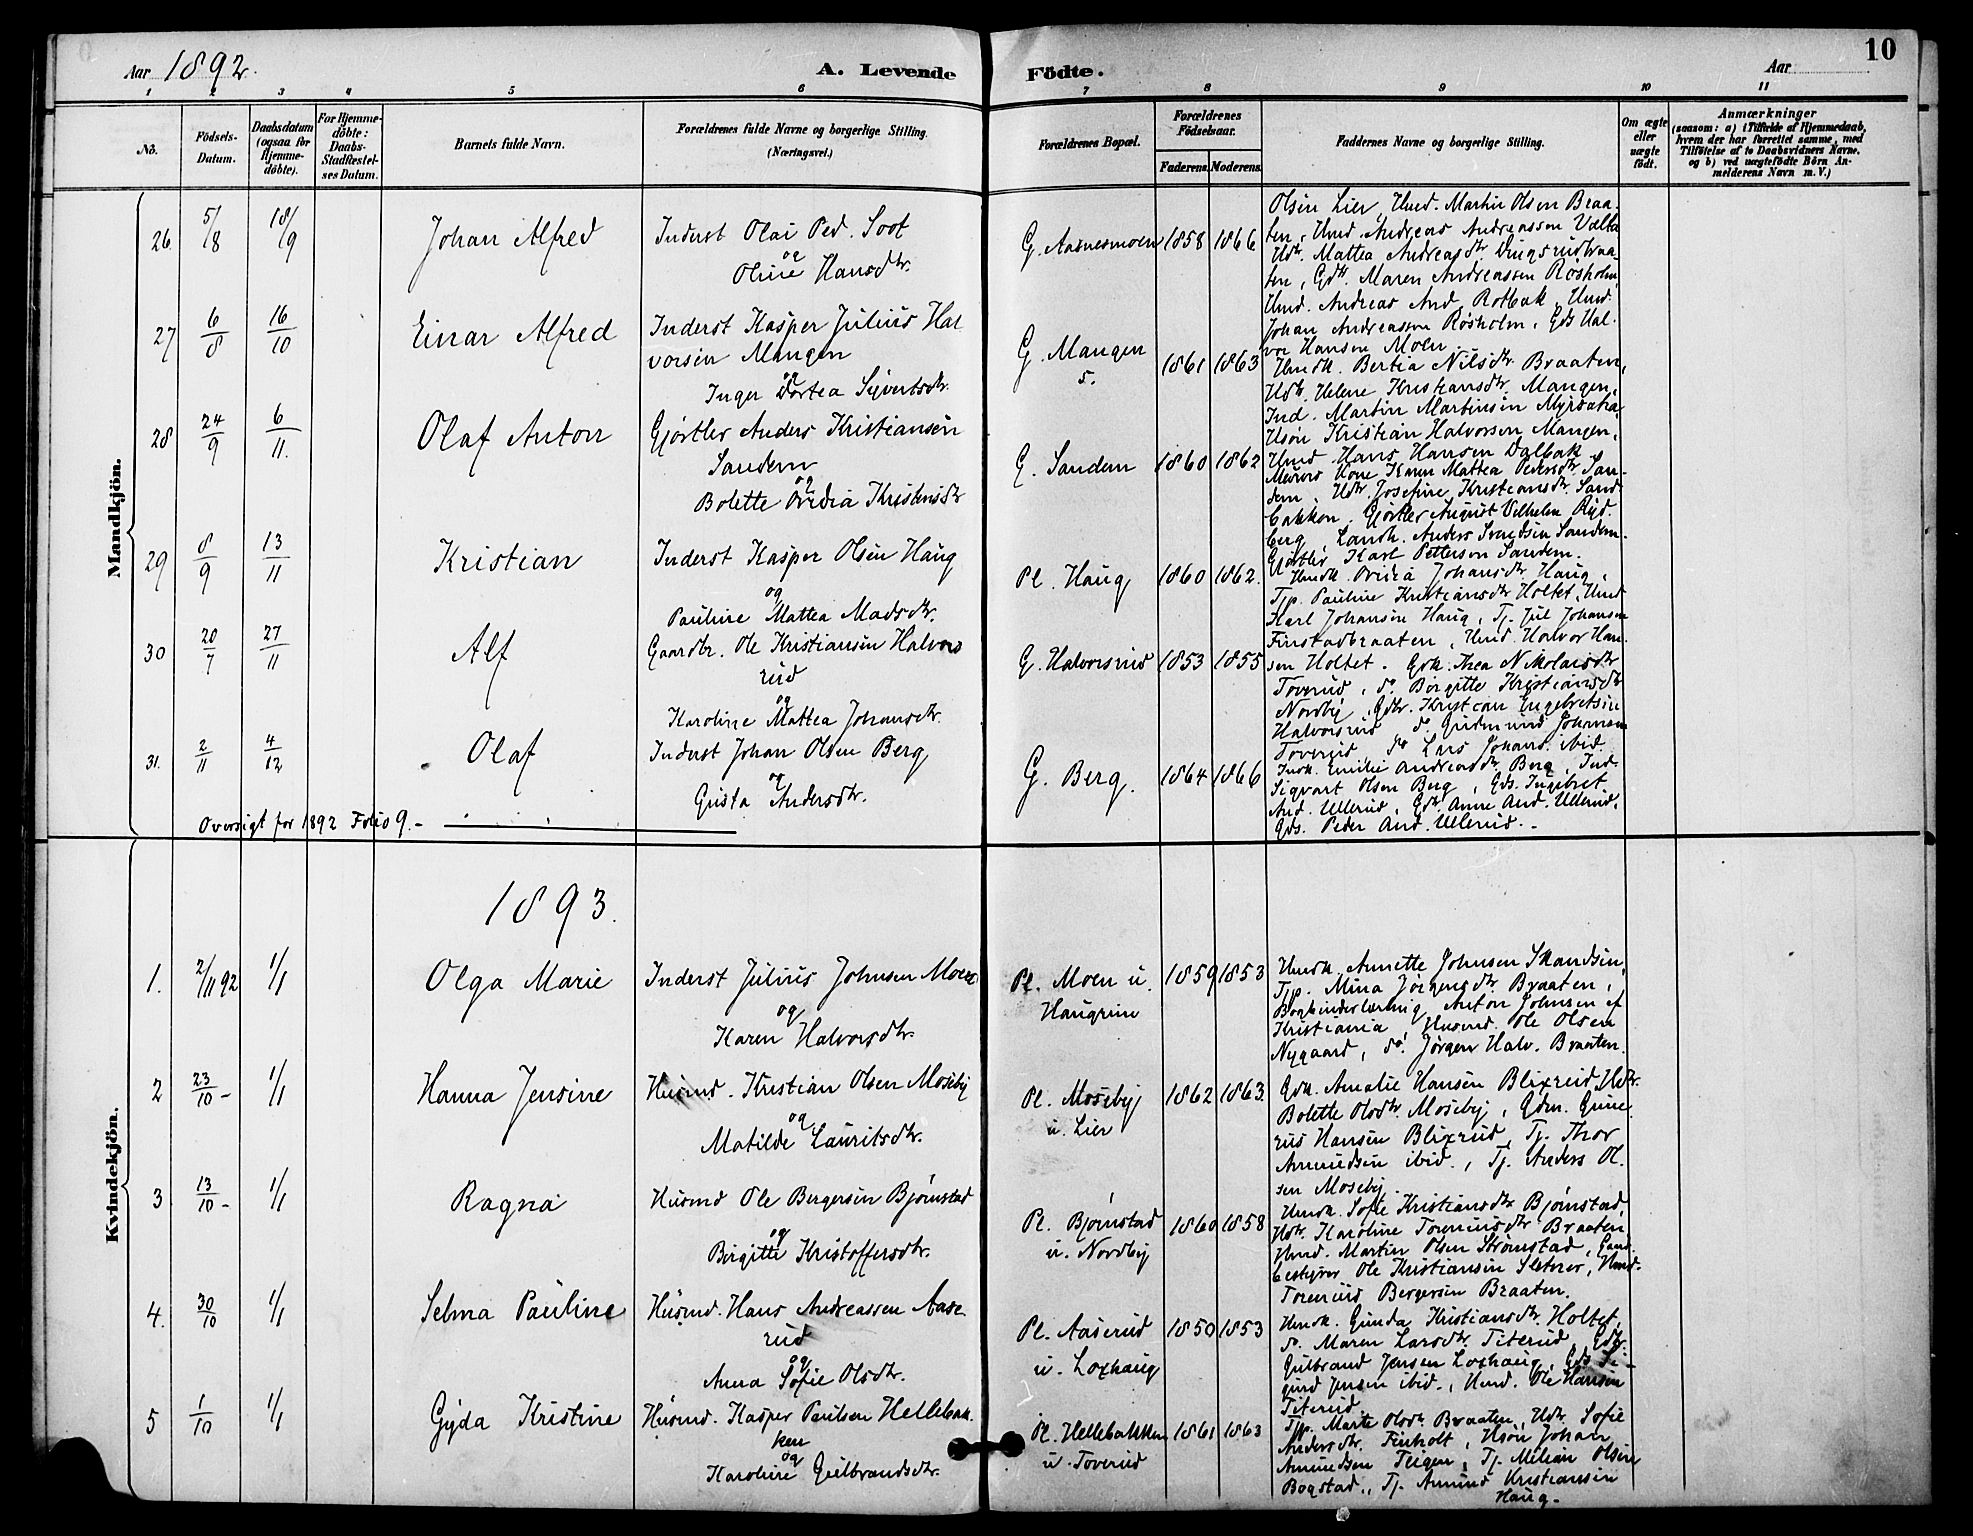 Aar 1892.
A. Levende Födte.
Aar
10
1 2 3 4 5 6 7 8 9 10 11
No.
Födsels-
Datum.
Daabsdatum
(ogsaa for
Hjemme-
döbte).
For Hjemme-
döbte:
Daabs-
Stadfæstel-
ses Datum.
Barnets fulde Navn.
Forældrenes fulde Navne og borgerlige Stilling.
(Næringsvei.)
Forældrenes Bopæl.
Forældrenes
Födselsaar.
Faderens. Moderens.
Faddernes Navne og borgerlige Stilling.
Om ægte
eller
uægte
födt.
Anmærkninger
(saasom: a) i Tilfælde af Hjemmedaab,
hvem der har forrettet samme, med
Tilföielse af to Daabsvidners Navne,
og b) ved uægtefödte Börn An-
melderens Navn m. V.)
Mandkjön.
26. 5/8 18/9 Johan Alfred
Inderst Olai Ped. Soot
og
Oline Hansdtr.
G. Aasnesmoen 1858 1866
Olsen Lier, Hmd. Martin Olsen Braa-
ten, Hmd. Andreas Andreassen Velta
Udtr. Mattea Andreasdtr. Dingsrudbraa-
ten, Gdtr. Maren Andreassen Rösholm,
Hmd. Andreas And. Rotbak, Hmd.
Johan Andreassen Rösholm, Gds Hal-
vor Hansen Moen.
27 6/8 16/10 Einar Alfred
Inderst Kasper Julius Hal
vorsen Mangen
og
Inger Dortea Sivertsdtr.
G. Mangen
s.
1861 1863
Hmdk. Bertia Nilsdtr. Braaten,
Hdtr. Helene Kristiansdtr. Mangen,
Ind. Martin Martinsen
Hsön Kristian Halvorsen Mangen,
Hmd Hans Hansen Dalbak
28 24/9 6/11. Olaf Anton
Gjörtler Anders Kristiansen
Sandem
og
Bolette Ovidia Kristensdtr
G. Sandem 1860 1862
Kone Karen Mattea Pedersdtr. San-
dem, Hdtr. Josefine Kristiansdtr. Sand-
bakken, Gjörtler August Vilhelm Ryd-
berg, Landh. Anders Svendsen Sandem.
Gjörtler Karl Petterson Sandem.
29 8/9 13/11 Kristian
Inderst Kasper Olsen Haug
og
Pauline Mattea Madsdtr.
Pl. Haug 1860 1862.
Hmdk. Ovidia Johansdtr. Haug,
Tjp. Pauline Kristiansdtr Holtet, Hmd
Karl Johansen Haug, Tj. Jul Johansen
Finstadbraaten, Hmd. Halvor Han-
sen Holtet.
30 20/7 27/11 Alf
Gaardbr. Ole Kristiansen Halvors
rud
og
Karoline Mattea Johansdtr.
G. Halvorsrud 1853 1855
Gdk. Thea Nikolaisdtr
Toverud, do. Birgitte Kristiansdtr
Nordby, Gdbr. Kristian Engebretsen
Halvorsrud do Gudmund Johansen
Toverud, do Lars Johans. ibid.
31. 2/11 4/12 Olaf
Inderst Johan Olsen Berg
og
Gusta Andersdtr.
G. Berg. 1864 1866
Indk. Emilie Andreasdtr Berg, Ind.
Sigvart Olsen Berg, Gds. Ingebret
And. Ullerud, Gdtr. Anne And. Ullerud,
Gds. Peder And. Ullerud.
Oversigt for 1892 Folio 9.
Kvindekjön.
1893.
1. 2/11 92 1/1 Olga Marie
Inderst Julius Johnsen Moen
og
Karen Halvorsdtr.
Pl. Moen u.
Haugrim
1859 1853
Hmdk. Annette Johnsen Skandsen,
Tjp. Mina Jörgensdtr Braaten,
Bogbinderlærling Anton Johnsen af
Kristiania, Husmd. Ole Olsen
Nygaard, do. Jörgen Halv. Braaten.
2 23/10 1/1 Hanna Jensine
Husmd. Kristian Olsen Moseby
og
Matilde Lauritsdtr.
Pl. Moseby
u. Lier
1862 1863.
Gdk. Amalie Hansen Blixrud, Hdtr.
Bolette Olsdtr. Moseby, Gdm. Gune-
rius Hansen Blixrud, Tj. Thor
Amundsen ibid., Tj. Anders Ol-
sen Moseby.
3 13/10 1/1 Ragna
Husmd Ole Bergersen Bjørnstad
og
Birgitte Kristoffersdtr.
Pl. Bjørnstad
u. Nordby
1860 1858
Hmdk. Sofie Kristiansdtr Bjørnstad,
Hdtr. Karoline Toreniusdtr Braaten
Hmd. Martin Olsen Strømstad, Gaard-
bestyrer Ole Kristiansen Sletner, Hmd.
Torenius Bergersen Braaten.
4. 30/10 1/1 Selma Pauline
Husmd. Hans Andreassen Aase
rud
og
Anna Sofie Olsdtr.
Pl. Aaserud
u. Loxhaug
1850 1853
Hmdk. Gunda Kristiansdtr. Holtet,
do. Maren Larsdtr. Titerud, Gdbr.
Gulbrand Jensen Loxhaug, Gds Si-
gurd Jensen ibid., Hmd. Ole Hansen
Titerud.
5 1/10 1/1 Gyda Kristine
Husmd. Kasper Paulsen Hellebak-
ken
og
Karoline Gulbrandsdtr.
Pl. Hellebakken
u. Toverud
1861 1863
Tjp. Marte Olsdtr Braaten, Hdtr. Sofie
Andersdtr. Finholt, Hsön Johan
Amundsen Teigen, Tj. Milian Olsen
Bogstad., Tj. Amund Kristiansen
Haug.